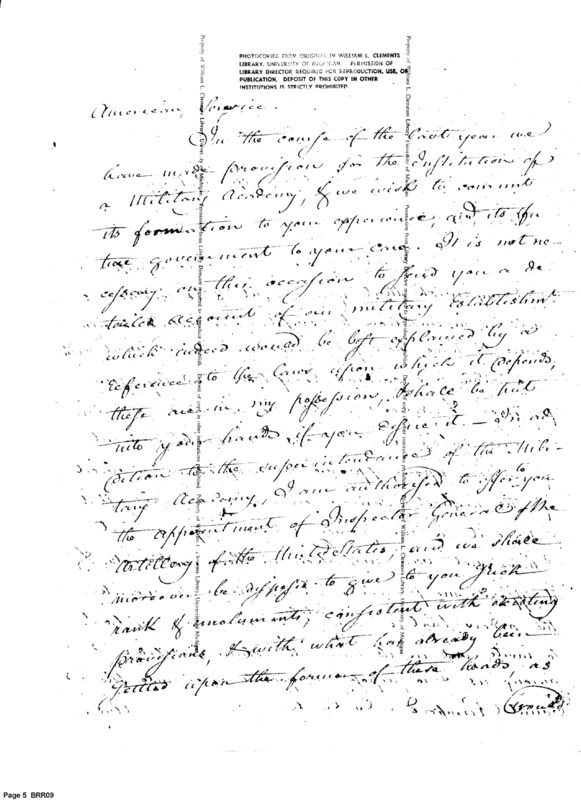 PHOTOCOPIED FROM ORIGINAL IN WILLIAM L. CLEMENTS
LIBRARY, UNIVERSITY OF MICHIGAN. PERMISSION OF
LIBRARY DIRECTOR REQUIRED FOR REPRODUCTION, USE, OR
PUBLICATION. DEPOSIT OF THIS COPY IN OTHER
INSTITUTIONS IS STRICTLY PROHIBITED
American Service.
In the course of the last year we
have made provision for the Institution of
a Military Academy, & we wish to commit
its formation to your experience, and its fu
ture government to your care. It is not ne
cessary on this occasion to send you a de
tailed account of our military Establishmt.
which indeed would be best explained by a
reference to the Laws upon which it depends,
these are in my possession, & shall be put
into your hands if you desire it — In ad
dition to the superintendance of the Mili
tary Academy, I am authorised to offer to you
the appointment of Inspector General of the
Artillery of the United States, and we shall
moreover be disposed to give to you such
rank & emoluments, consistent with existing
provisions, & with what has already been
settled upon the former of these heads, as
would
Page 5 BRR09